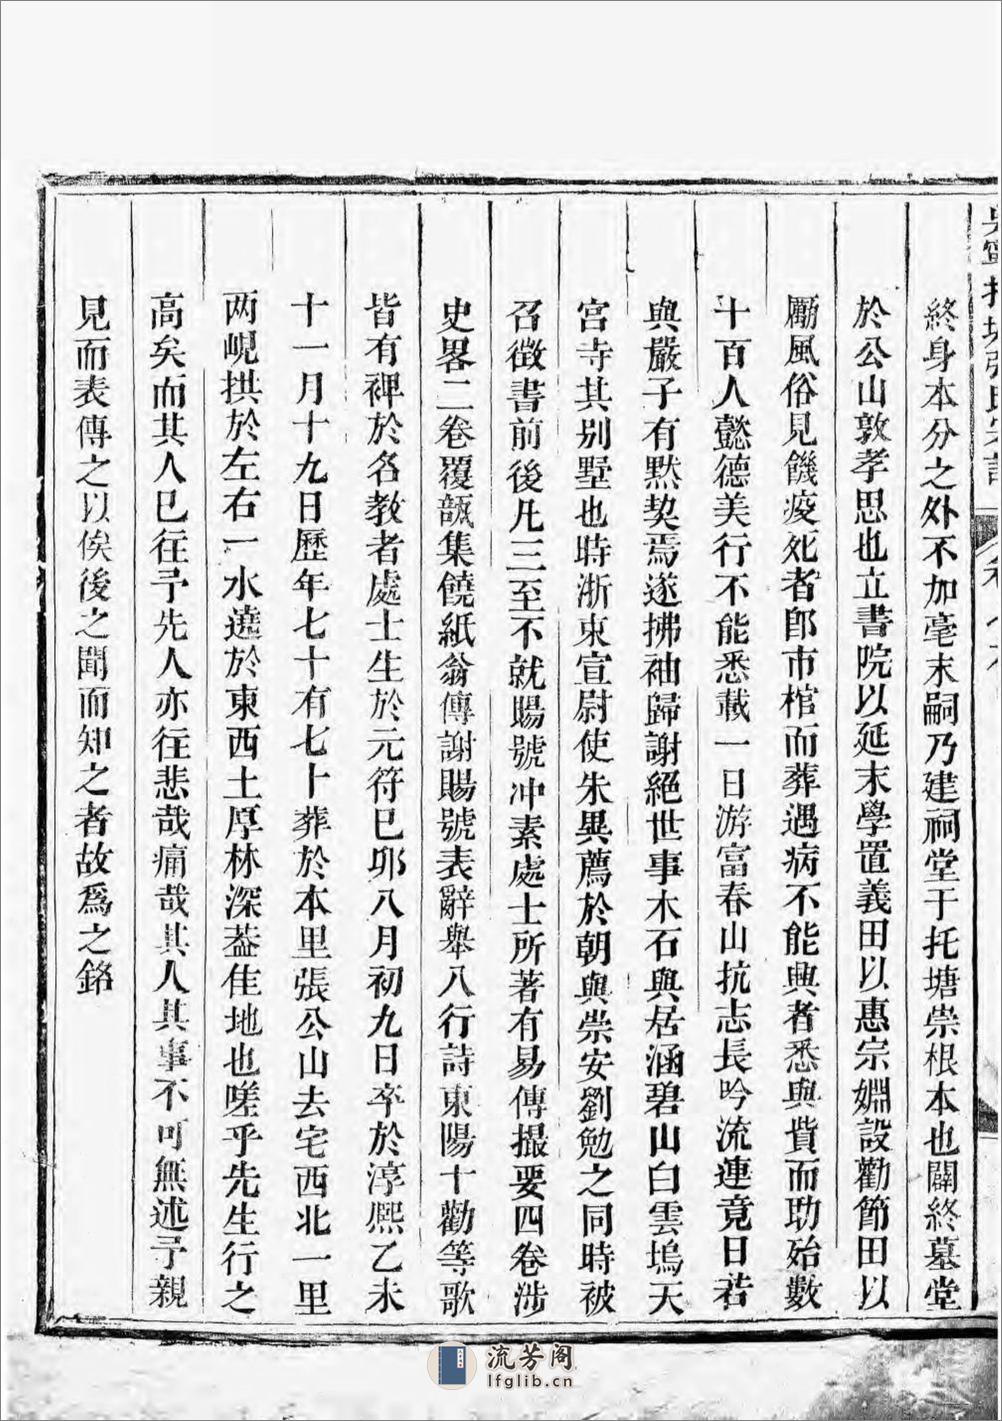 終身本分之外不加毫末嗣乃建祠堂于托塘崇根本也闢終墓堂
於公山敦孝思也立書院以延末學置義田以惠宗婣設勸節田以
勵風俗見饑疫死者卽市棺而葬遇病不能興者悉與貲而助殆數
十百人懿德美行不能悉載一日游富春山抗志長吟流連竟日若
與嚴子有默契焉遂拂袖歸謝絕世事木石與居涵碧山白雲塢天
宮寺其别墅也時浙東宣尉使朱異薦於朝與崇安劉勉之同時被
召徵書前後凡三至不就賜號冲素處士所著有易傳撮要四卷涉
史畧二卷覆瓿集饒紙翁傳謝賜號表辭舉八行詩東陽十勸等歌
皆有裨於名教者處士生於元符已夘八月初九日卒於淳熈乙未
十一月十九日歷年七十有七十葬於本里張公山去宅西北一里
两峴拱於左右一水遶於東西土厚林深葢佳地也嗟乎先生行之
高矣而其人已往予先人亦往悲哉痛哉其人其事不可無述予親
見而表傳之以俟後之聞而知之者故爲之銘
流芳阁
lfglib.cn